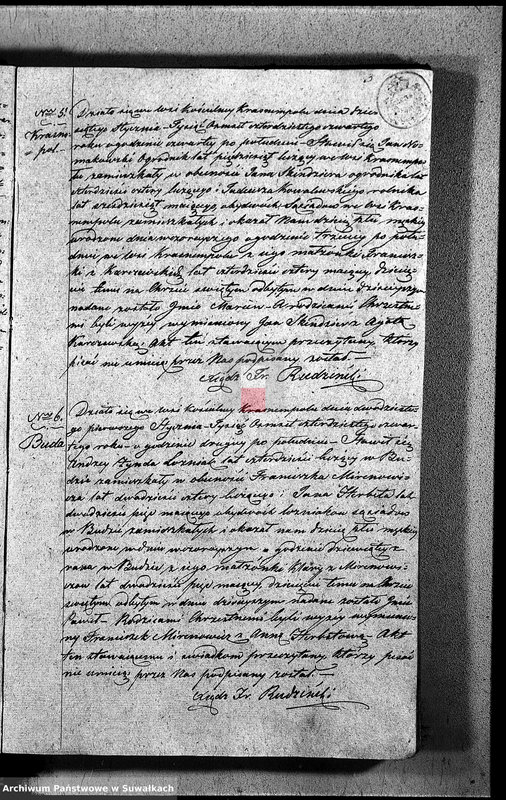 3
Nro 5.
Krasno-
pol.
Działo się we wsi kościelney Krasnempolu dnia dzie-
siątego Stycznia Tysiąc Osmset czterdziestego czwartego
roku o godzinie czwarty po południu Stawił się Jan
Ogrodnik lat pięćdziesiąt liczący we wsi Krasnempo-
lu zamieszkały w obecności Jana Skindziera ogrodnika lat
czterdzieści cztery liczącego i Tadeusza Kowalewskiego rolnika
lat sześćdziesiąt maiącego, obydwóch Sąsiadów we wsi Kras-
nempolu zamieszkałych i okazał Nam dziecię płci męskiej
urodzone dnia wczorayszego o godzinie trzeciey po połu-
dniu we wsi Krasnempolu z iego małżonki Francisz-
ki z lat czterdzieści cztery maiącey, dziecię-
ciu temu na Chrzcie świętym odbytym w dniu dzisieyszym
nadane zostało Imie Marcin a rodzicami Chrzestne-
mi byli wyżey wymieniony Jan Skindzier z Agatą
Karczewską; Akt ten stawaiącym przeczytany, którzy
pisać nie umieią przez Nas podpisany został.
Xiądz Fr. Rudziński
Nro 6.
Buda
Działo się we wsi kościelney Krasnempolu dnia dwudzieste-
go pierwszego Stycznia Tysiąc Osmset czterdziestego czwar-
tego roku o godzinie drugiey po południu Stawił się
Andrzey Zynda Loźniak lat czterdzieści liczący w Bu-
dzie zamieszkały w obecności Franciszka Mirenowi-
cza lat dwadzieścia cztery liczącego i Jana Herbsta lat
dwadzieścia pięć maiącego obydwóch loźniaków sąsiadów
w Budzie zamieszkałych i okazał nam dziecię płci męskiey
urodzone w dniu wczorayszym o godzinie dziewiątey z
rana w Budzie z iego małżonki z Mirenowi-
czow lat dwadzieścia pięć maiącey, dziecięciu temu na Chrzcie
świętym odbytym w dniu dzisieyszym nadane zostało Imie
Paweł Rodzicami Chrzestnemi byli wyżey wymienio-
ny Franciszek Mirenowicz z Anną Herbstową. Akt
ten stawaiącemu i świadkom przeczytany, którzy pisać
nie umieią przez Nas podpisany został.
Xiądz Fr. Rudziński
Archiwum Państwowe w Suwałkach